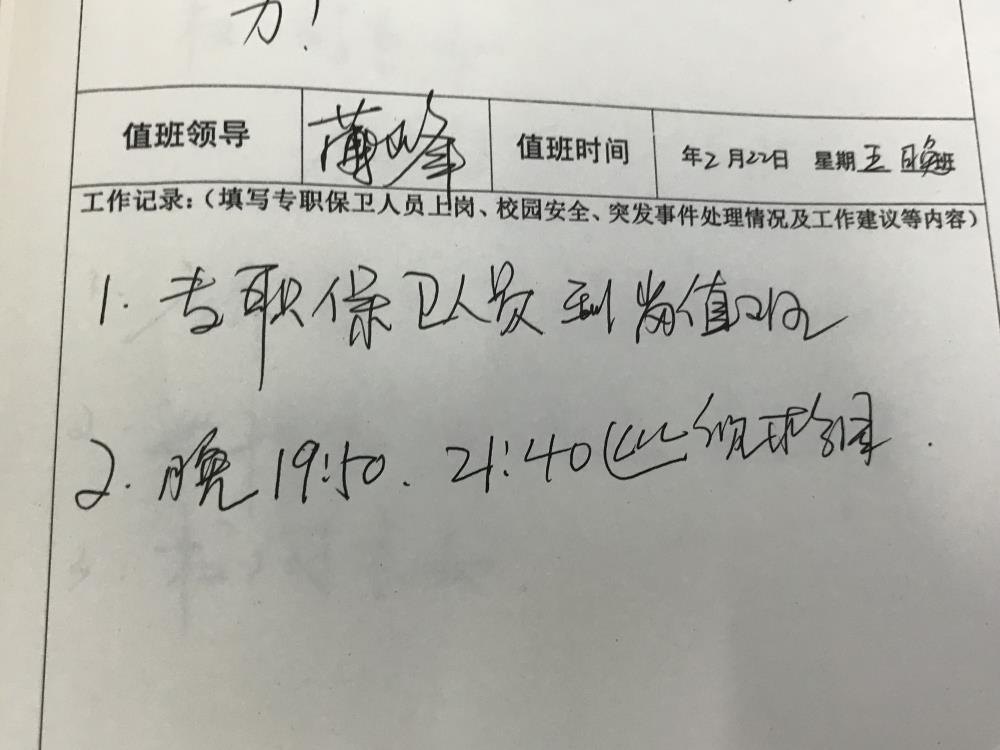 力！
值班领导 蒲峰 值班时间 年2月22日 星期五 晚班
工作记录：（填写专职保卫人员上岗、校园安全、突发事件处理情况及工作建议等内容）
1. 专职保卫人员到岗值班
2. 晚19:50. 21:40